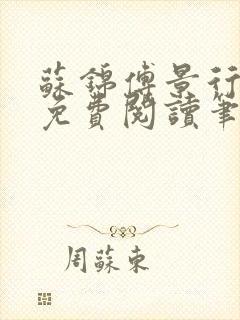 蘇錦傅景行
免費閱讀筆
周蘇東